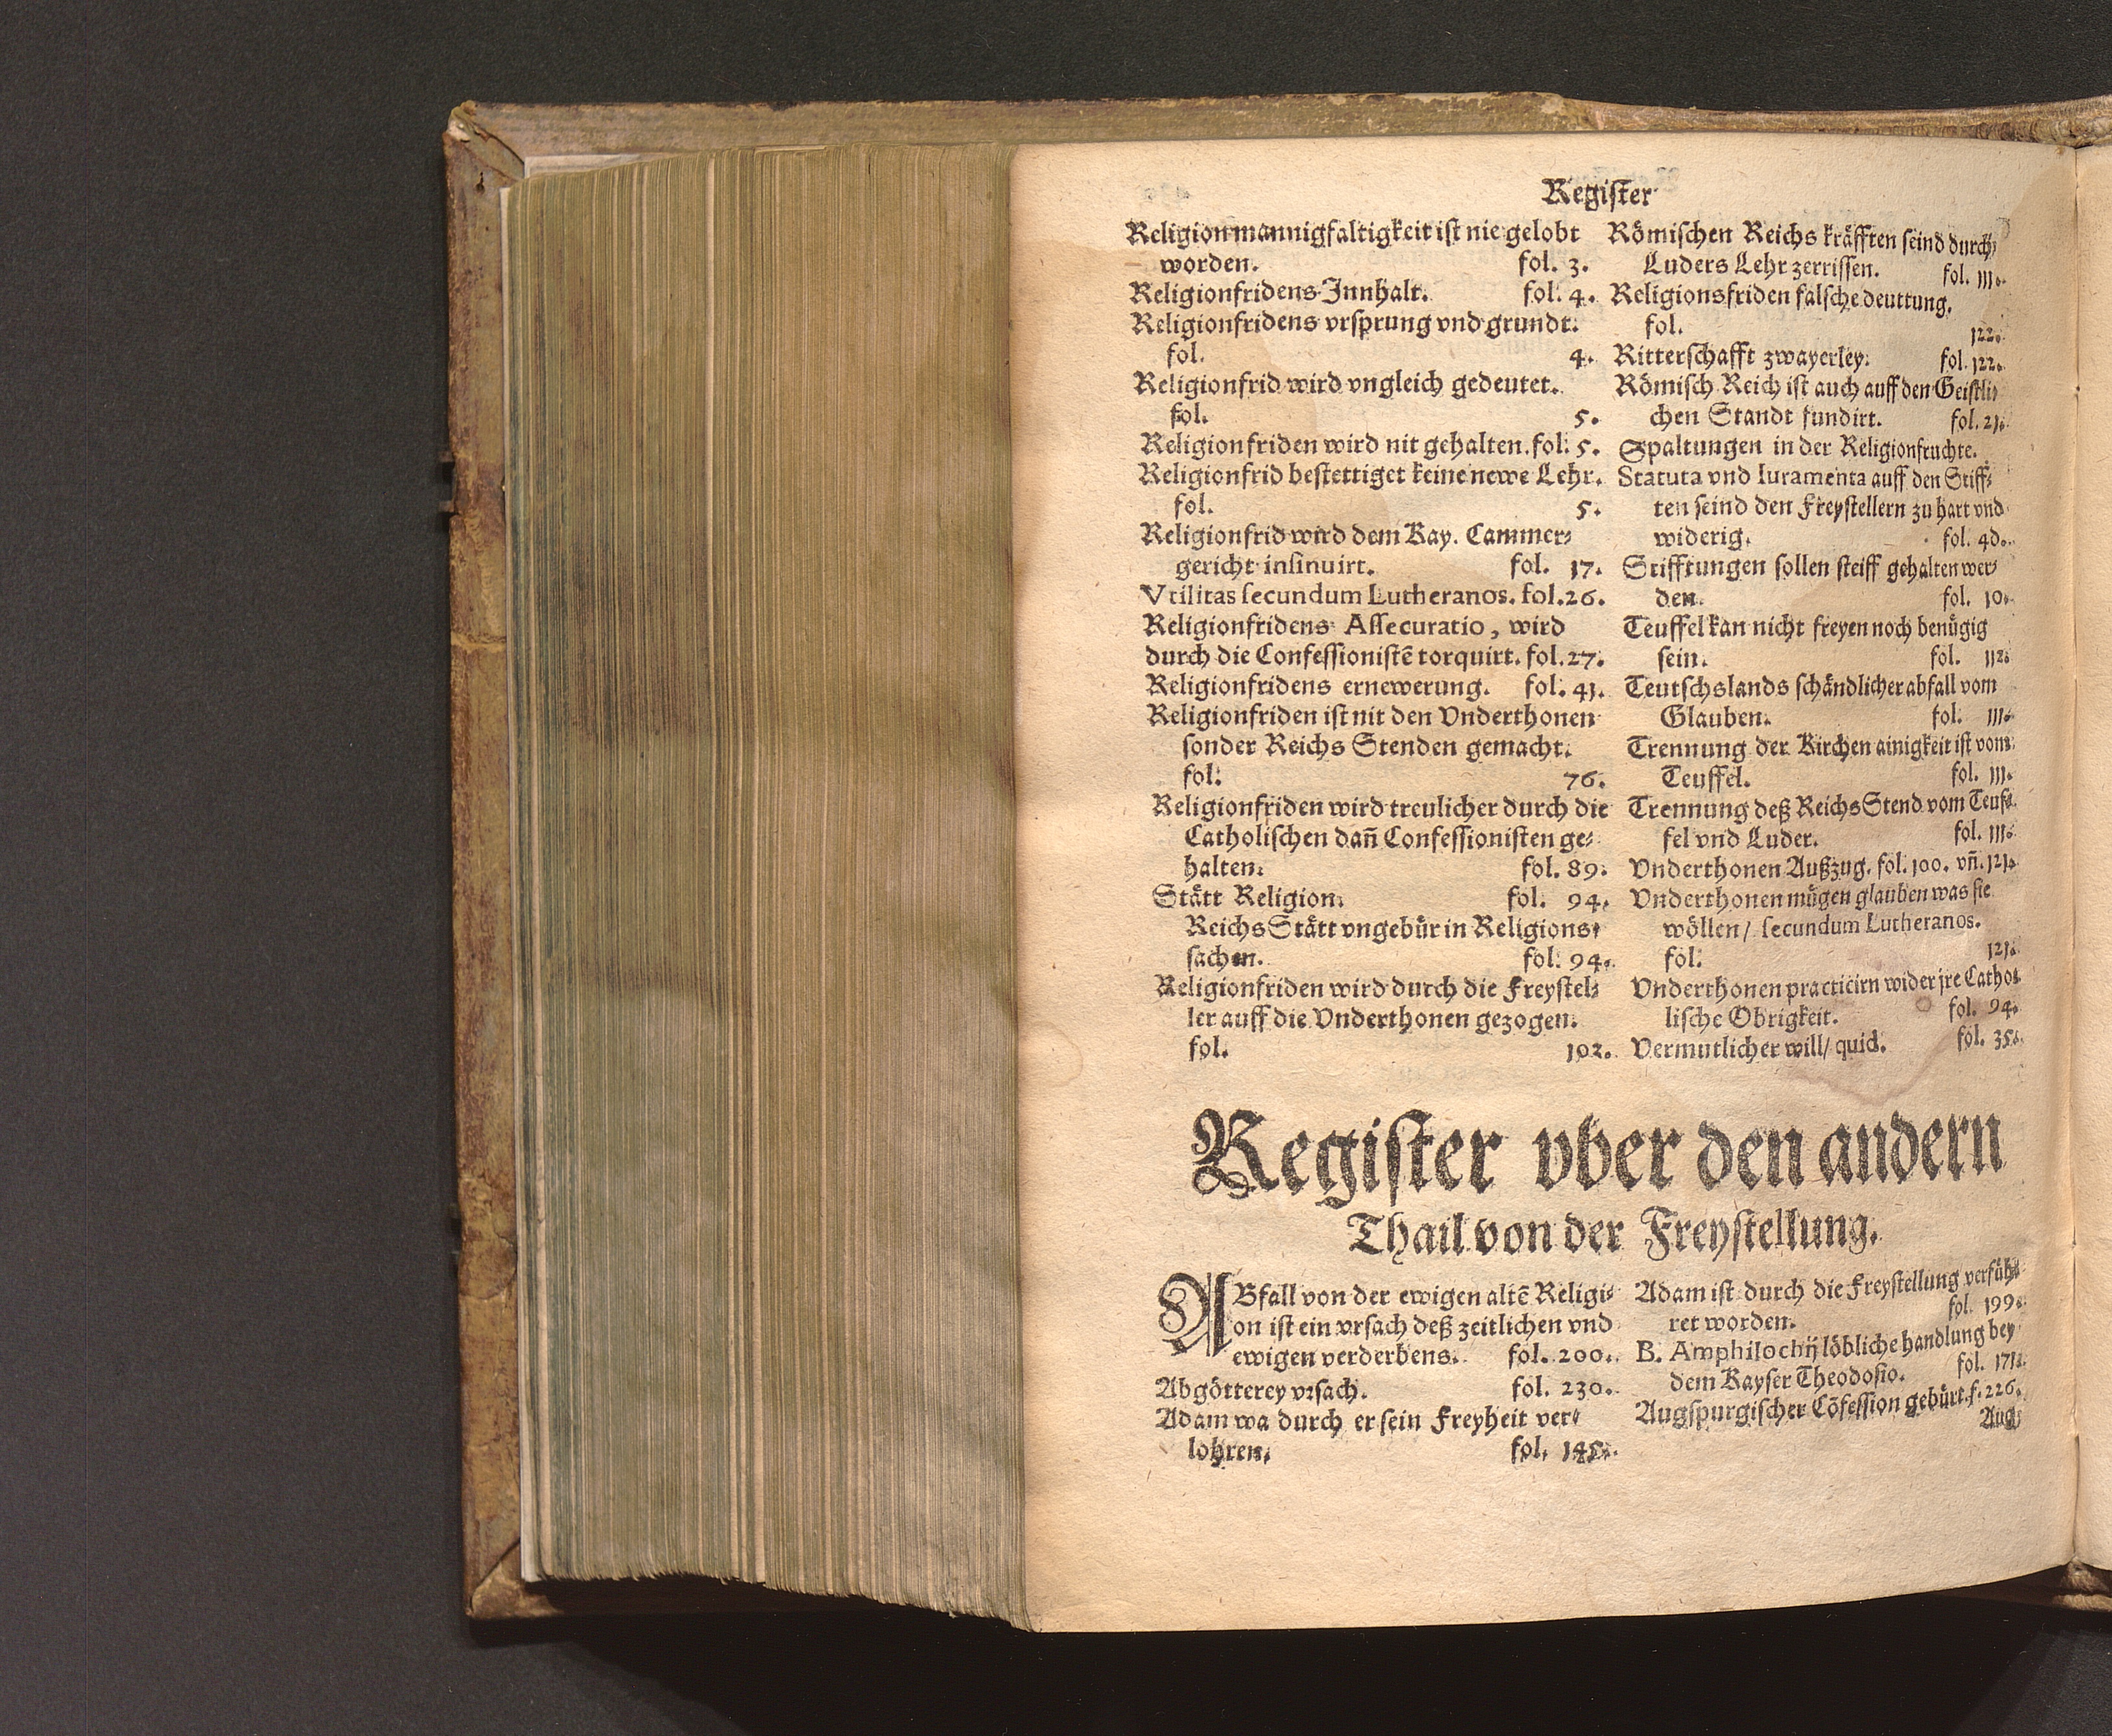 Register
Religion mannigfaltigkeit ist nie gelobt
worden. fol. 3.
Religionfridens Innhalt. fol. 4.
Religionfridens vrsprung vnd grundt.
fol. 4.
Religionfrid wird vngleich gedeutet.
fol. 5.
Religionfriden wird nit gehalten. fol. 5.
Religionfrid bestettiget keine newe Lehr.
fol. 5.
Religionfrid wird dem Kay. Cammer⸗
gericht insinuirt. fol. 17.
Vtilitas secundum Lutheranos. fol. 26.
Religionfridens Assecuratio, wird
durch die Confessionistē torquirt. fol. 27.
Religionfridens ernewerung. fol. 41.
Religionfriden ist nit den Vnderthonen
sonder Reichs Stenden gemacht.
fol. 76.
Religionfriden wird treulicher durch die
Catholischen dañ Confessionisten ge⸗
halten. fol. 89.
Stätt Religion. fol. 94.
Reichs Stätt vngebür in Religions⸗
sachen. fol. 94.
Religionfriden wird durch die Freystel⸗
ler auff die Vnderthonen gezogen.
fol. 102.
Römischen Reichs kräfften seind durch
Luders Lehr zerrissen. fol. 111.
Religionsfriden falsche deuttung.
fol. 122.
Ritterschafft zwayerley. fol. 122.
Römisch Reich ist auch auff den Geistli⸗
chen Standt fundirt. fol. 21.
Spaltungen in der Religion fruchte.
Statuta vnd Iuramenta auff den Stiff⸗
ten seind den Freystellern zu hart vnd
widerig. fol. 40.
Stifftungen sollen steiff gehalten wer⸗
den. fol. 10.
Teuffel kan nicht freyen noch benügig
sein. fol. 112.
Teutschslands schändlicher abfall vom
Glauben. fol. 111.
Trennung der Kirchen ainigkeit ist vom
Teuffel. fol. 111.
Trennung deß Reichs Stend vom Teuf⸗
fel vnd Luder. fol. 111.
Vnderthonen Außzug. fol. 100. vñ. 121.
Vnderthonen mügen glauben was sie
wöllen / secundum Lutheranos.
fol. 121.
Vnderthonen practicirn wider jre Catho⸗
lische Obrigkeit. fol. 94.
Vermutlicher will / quid. fol. 35.
Register vber den andern
Thail von der Freystellung.
ABfall von der ewigen altē Religi⸗
on ist ein vrsach deß zeitlichen vnd
ewigen verderbens. fol. 200.
Abgötterey vrsach. fol. 230.
Adam wa durch er sein Freyheit ver⸗
lohren. fol. 145.
Adam ist durch die Freystellung verfüh⸗
ret worden. fol. 199.
B. Amphilochij löbliche handlung bey
dem Kayser Theodosio. fol. 171.
Augspurgischer Cōfession gebürt. f. 226.
Aug⸗